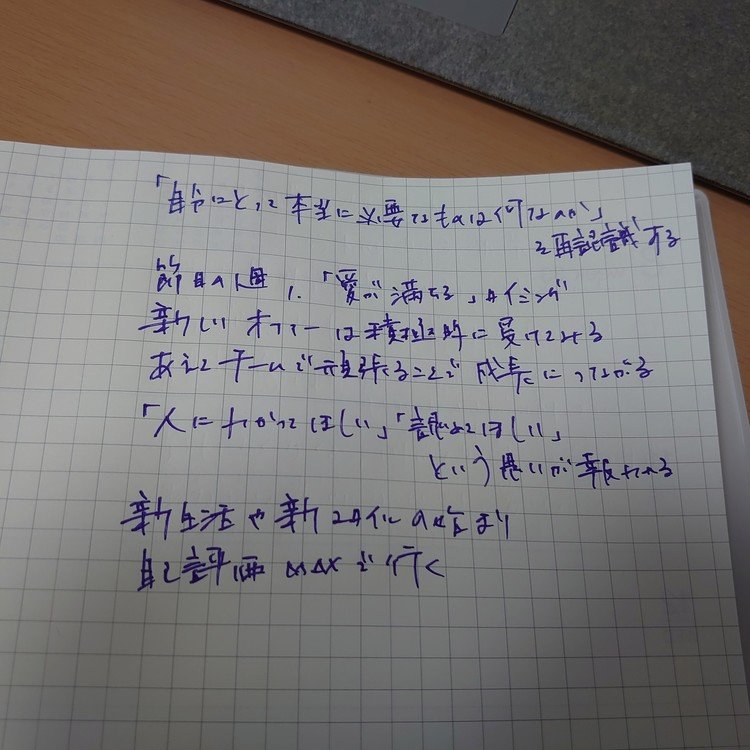 「自分にとって本当に必要なものは何なのか」
を再認識する
節目の週、「愛が満ちる」タイミング
新しいオファーは積極的に受けてみる
あえてチームで頑張ることで成長につながる
「人にわかってほしい」「認めてほしい」
という思いが報われる
新生活や新スタイルの始まり
自己評価MAXで行く